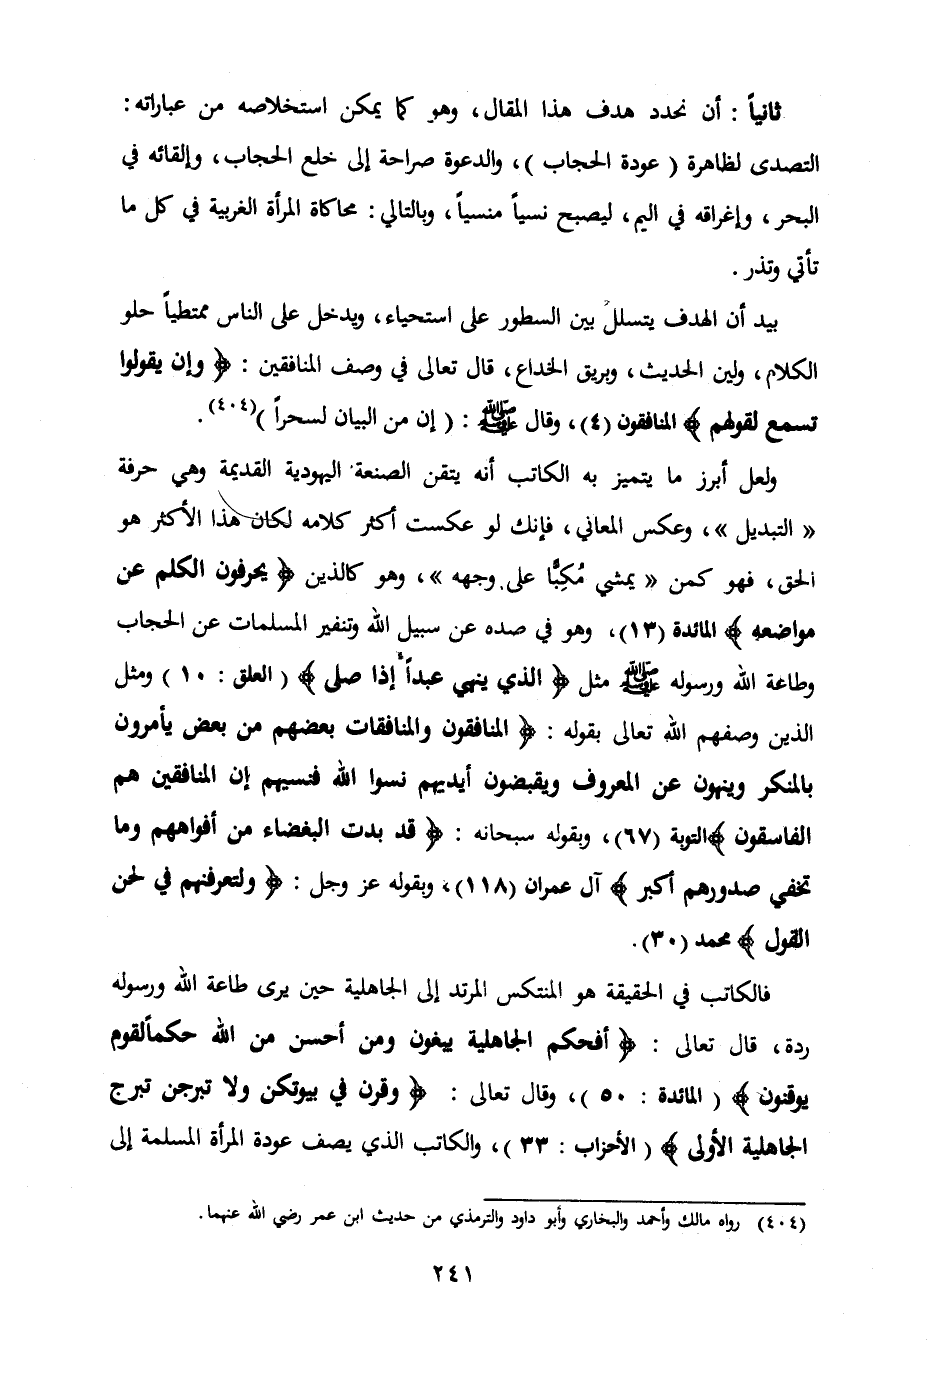 ثانياً : أن نحدد هدف هذا المقال، وهو كما يمكن استخلاصه من عباراته :
التصدى لظاهرة ( عودة الحجاب )، والدعوة صراحة إلى خلع الحجاب، وإلقائه في
البحر ، وإغراقه في اليم ، ليصبح نسياً منسياً ، وبالتالي : محاكاة المرأة الغربية في كل ما
تأتي وتذر .
بيد أن الهدف يتسلل بين السطور على استحياء، ويدخل على الناس ممتطياً حلو
الكلام، ولين الحديث، وبريق الخداع، قال تعالى في وصف المنافقين : ﴿ وإن يقولوا
تسمع لقولهم ﴾ المنافقون (٤)، وقال ﷺ : ( إن من البيان لسحراً )(٤٠٤).
ولعل أبرز ما يتميز به الكاتب أنه يتقن الصنعة اليهودية القديمة وهي حرفة
« التبديل »، وعكس المعاني، فإنك لو عكست أكثر كلامه لكان هذا الأكثر هو
الحق، فهو كمن « يمشي مُكِبًّا على وجهه »، وهو كالذين ﴿ يحرفون الكلم عن
مواضعه ﴾ المائدة (١٣)، وهو في صده عن سبيل الله وتنفير المسلمات عن الحجاب
وطاعة الله ورسوله ﷺ مثل ﴿ الذي ينهي عبداً إذا صلى ﴾ ( العلق : ١٠ ) ومثل
الذين وصفهم الله تعالى بقوله : ﴿ المنافقون والمنافقات بعضهم من بعض يأمرون
بالمنكر وينهون عن المعروف ويقبضون أيديهم نسوا الله فنسيهم إن المنافقين هم
الفاسقون ﴾التوبة (٦٧)، وبقوله سبحانه : ﴿ قد بدت البغضاء من أفواههم وما
تخفي صدورهم أكبر ﴾ آل عمران (١١٨)، وبقوله عز وجل : ﴿ ولتعرفنهم في لحن
القول ﴾ محمد (٣٠).
فالكاتب في الحقيقة هو المنتكس المرتد إلى الجاهلية حين يرى طاعة الله ورسوله
ردة، قال تعالى : ﴿ أفحكم الجاهلية يبغون ومن أحسن من الله حكماًلقوم
يوقنون ﴾ ( المائدة : ٥٠ )، وقال تعالى : ﴿ وقرن في بيوتكن ولا تبرجن تبرج
الجاهلية الأولى ﴾ ( الأحزاب : ٣٣ )، والكاتب الذي يصف عودة المرأة المسلمة إلى
(٤٠٤) رواه مالك وأحمد والبخاري وأبو داود والترمذي من حديث ابن عمر رضي الله عنهما.
٢٤١